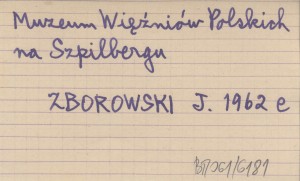 Muzeum Więźniów Polskich
na Szpilbergu
ZBOROWSKI J. 1962 e